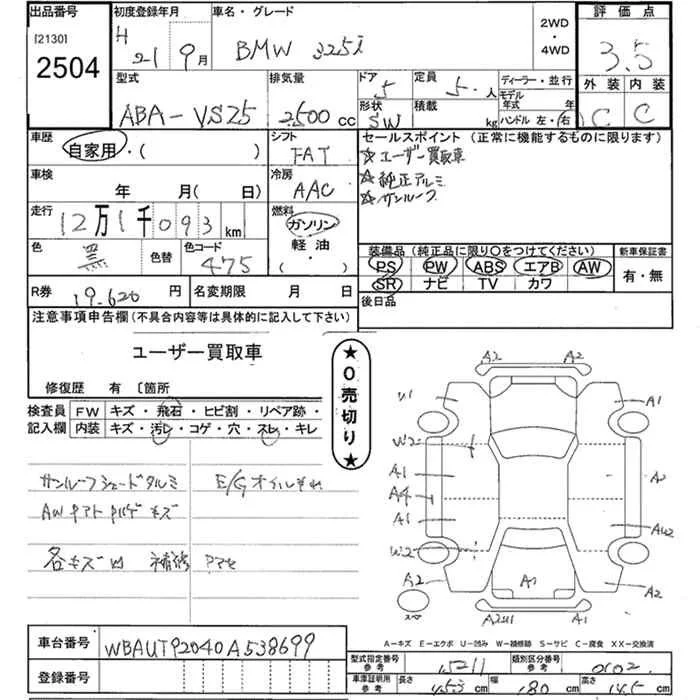 出品番号 初度登録年月 車名・グレード 2WD・4WD 評価点
[2130] 2504 H 21 9月 BMW 325i 3.5
型式 排気量 ドア 定員 ディーラー・並行 外装 内装
ABA-VS25 2500 cc 5 5人 モデル年式 年 C C
形状 積載 ハンドル 左・右
SW kg
車歴 シフト セールスポイント (正常に機能するものに限ります)
自家用・( ) FAT ☆ユーザー買取車
車検 冷房 ☆純正アルミ
年 月( 日) AAC ☆サンルーフ
走行 燃料
12万1千093km ガソリン
軽油
( ・ )
色 色替 色コード
黒 475
装備品(純正品に限り○をつけてください) 新車保証書
PS PW ABS エアB AW 有・無
SR ナビ TV カワ
R券 19,620円 名変期限 月 日 後日品
注意事項申告欄(不具合内容等は具体的に記入して下さい)
ユーザー買取車
修復歴 有 〔箇所
★0売切り★
検査員 FW キズ・飛石・ヒビ割・リペア跡・
記入欄 内装 キズ・汚レ・コゲ・穴・スレ・キレ
サンルーフシェードタルミ E/Gオイル
AW キズ
各キズ凹 補修
A2 A2
U1 A1
W2
A1
A4
A1 AU2
W2
A2 A1 A2
スペ
A-キズ E-エクボ U-凹み W-補修跡 S-サビ C-腐食 XX-交換済
車台番号 WBAUT92040A538699
登録番号
型式指定番号 参考 15211 類別区分番号 参考 0102
車庫証明用 参考 長さ 453cm 幅 180cm 高さ 145cm